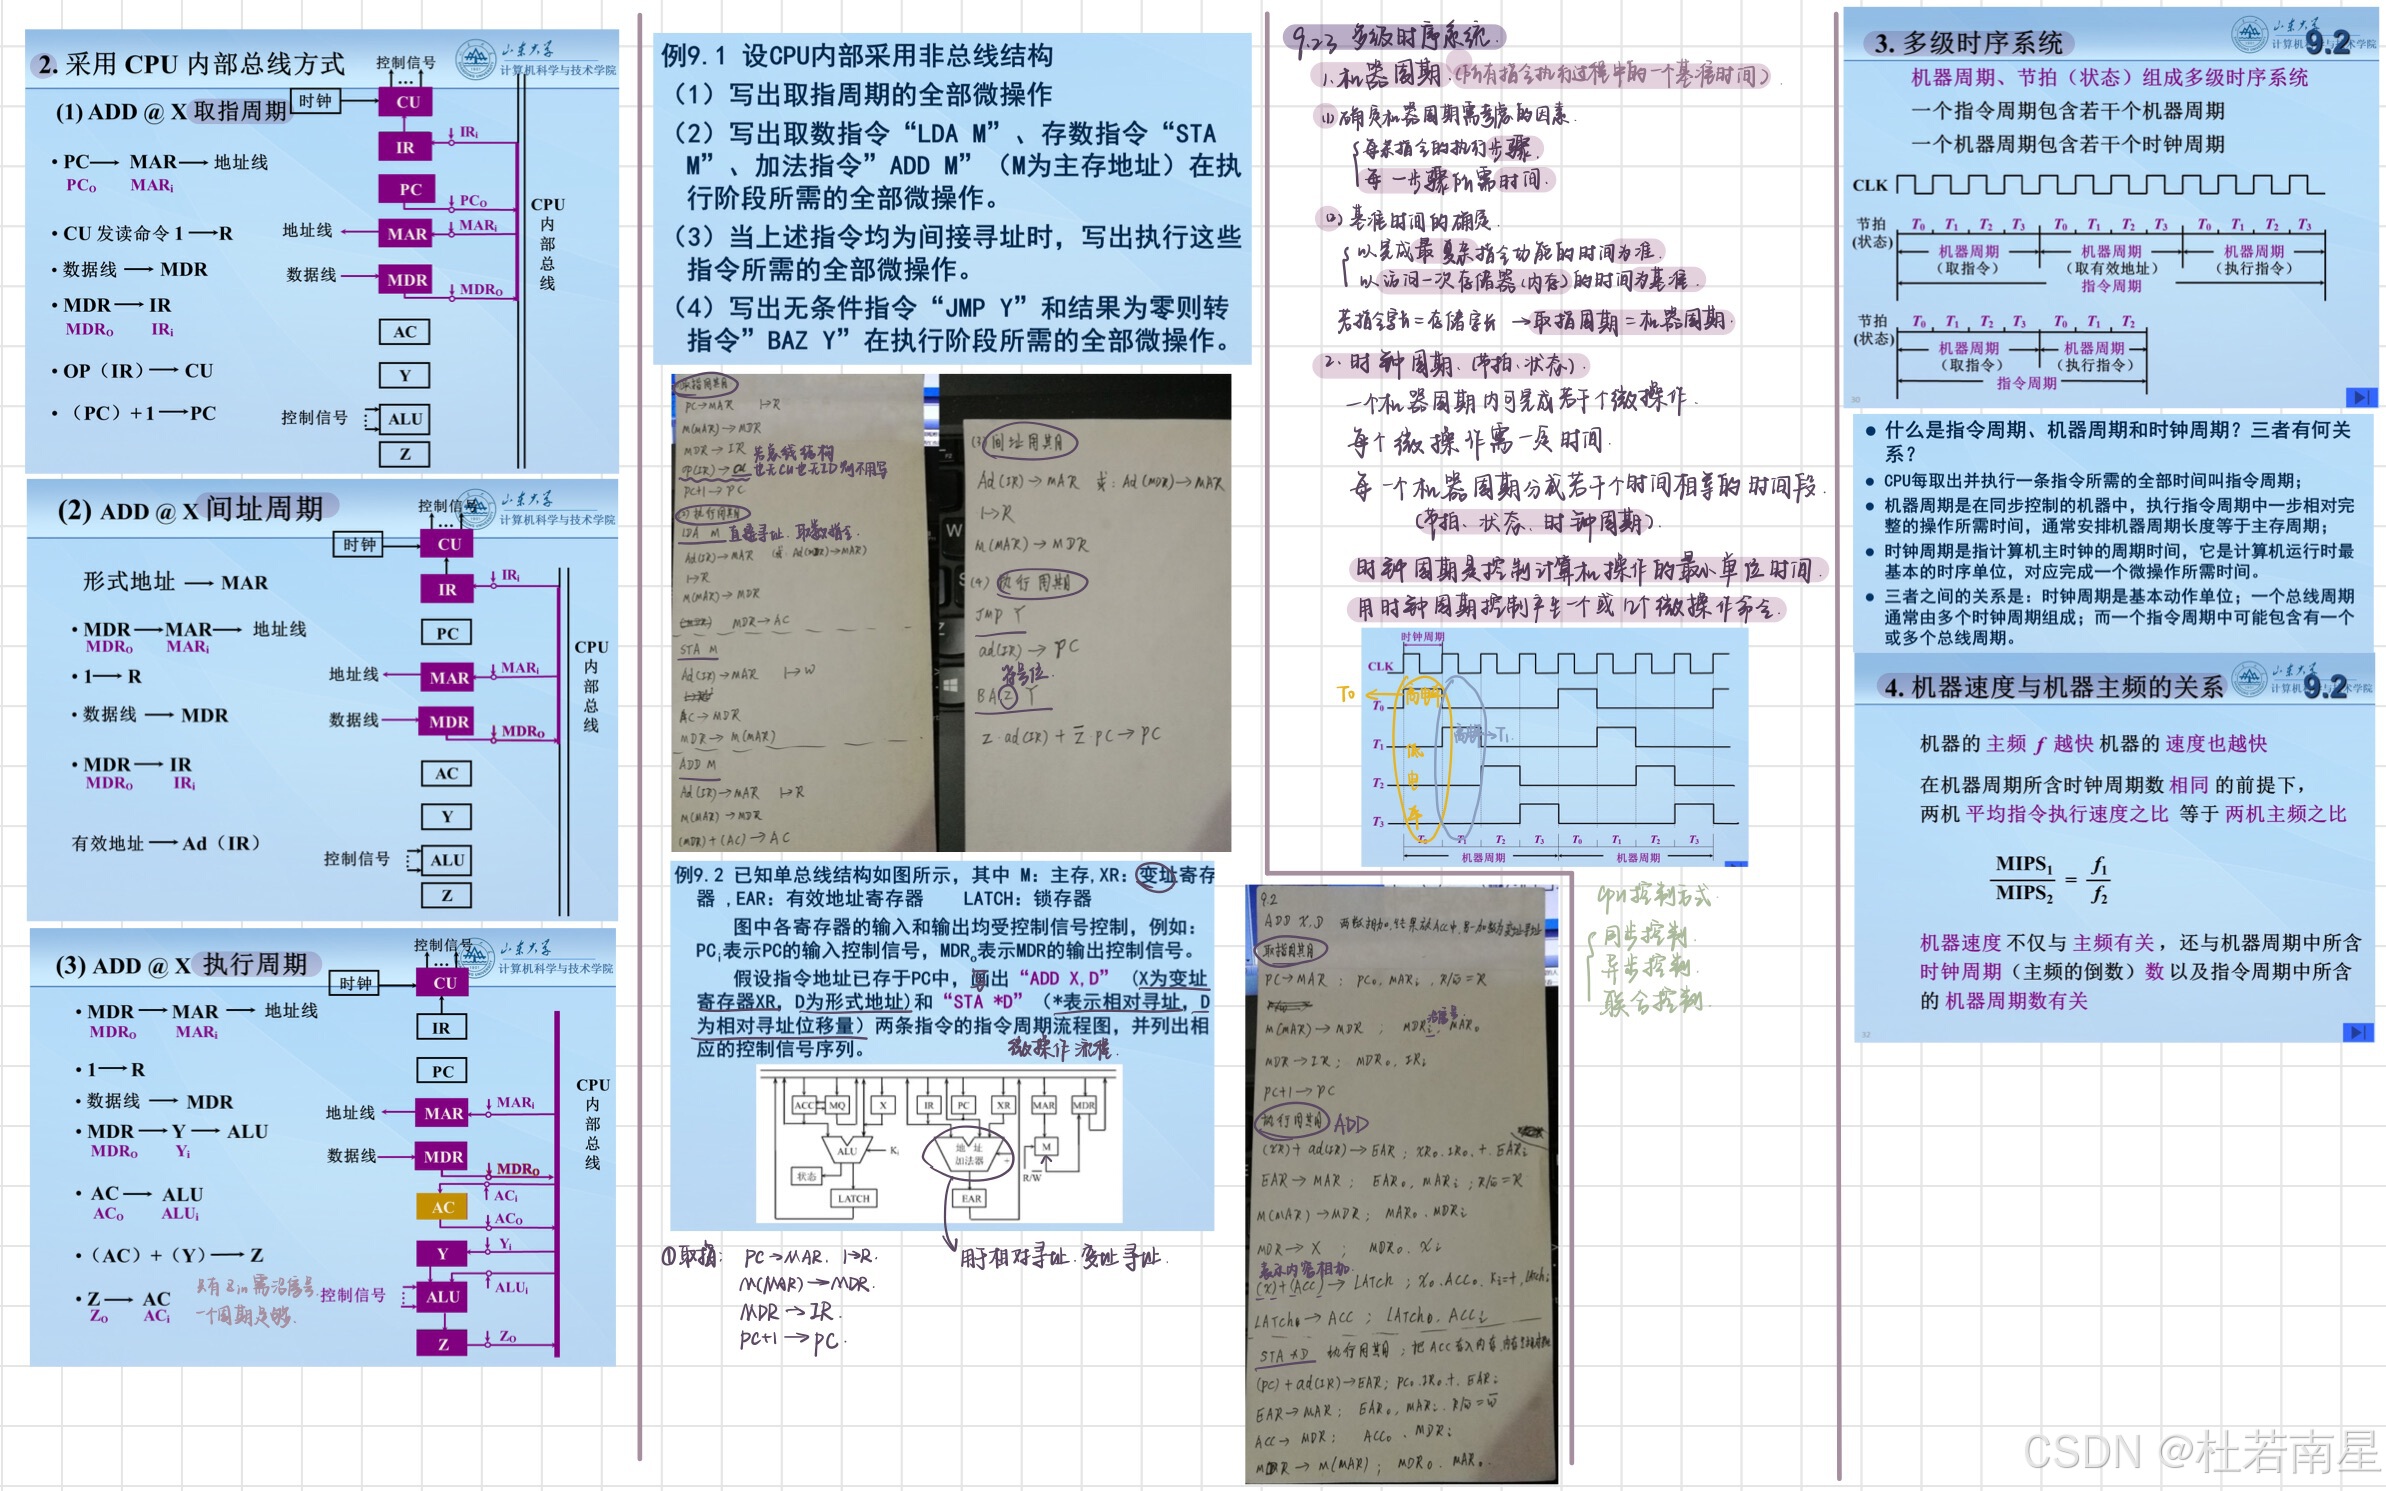 2. 采用 CPU 内部总线方式
山东大学
计算机科学与技术学院
(1) ADD @ X 取指周期
• PC → MAR → 地址线
PCO MARi
• CU 发读命令 1 → R
• 数据线 → MDR
• MDR → IR
MDRO IRi
• OP（IR）→ CU
• （PC）+ 1 → PC
控制信号
…
时钟
CU
IRi
IR
PC
PCO
地址线
MAR
MARi
数据线
MDR
MDRO
AC
Y
控制信号
ALU
Z
CPU
内
部
总
线
(2) ADD @ X 间址周期
山东大学
计算机科学与技术学院
形式地址 → MAR
• MDR → MAR → 地址线
MDRO MARi
• 1 → R
• 数据线 → MDR
• MDR → IR
MDRO IRi
有效地址 → Ad（IR）
控制信号
…
时钟
CU
IRi
IR
PC
地址线
MAR
MARi
数据线
MDR
MDRO
AC
Y
控制信号
ALU
Z
CPU
内
部
总
线
(3) ADD @ X 执行周期
山东大学
计算机科学与技术学院
• MDR → MAR → 地址线
MDRO MARi
• 1 → R
• 数据线 → MDR
• MDR → Y → ALU
MDRO Yi
• AC → ALU
ACO ALUi
• （AC）+（Y）→ Z
• Z → AC
ZO ACi
一个周期足够.
控制信号
…
时钟
CU
IR
PC
地址线
MAR
MARi
数据线
MDR
MDRO
ACi
AC
ACO
Y
Yi
ALUi
控制信号
ALU
Z
ZO
CPU
内
部
总
线
例9.1 设CPU内部采用非总线结构
（1）写出取指周期的全部微操作
（2）写出取数指令“LDA M”、存数指令“STA
M”、加法指令”ADD M”（M为主存地址）在执
行阶段所需的全部微操作。
（3）当上述指令均为间接寻址时，写出执行这些
指令所需的全部微操作。
（4）写出无条件指令“JMP Y”和结果为零则转
指令”BAZ Y”在执行阶段所需的全部微操作。
取指周期
PC→MAR 1→R
M(MAR)→MDR
MDR→IR 若总线结构
OP(IR)→CU 也无CU也无ID则不用写
PC+1→PC
(2) 执行周期
LDA M 直接寻址. 取数指令.
Ad(IR)→MAR (或: Ad(MDR)→MAR)
1→R
M(MAR)→MDR
MDR→AC
STA M
Ad(IR)→MAR 1→W
AC→MDR
MDR→M(MAR)
ADD M
Ad(IR)→MAR 1→R
M(MAR)→MDR
(MDR)+(AC)→AC
(3) 间址周期
Ad(IR)→MAR 或: Ad(MDR)→MAR
1→R
M(MAR)→MDR
(4) 执行周期
JMP Y
ad(IR)→PC
符号位.
BAZ Y
Z·ad(IR)+Z̄·PC→PC
例9.2 已知单总线结构如图所示，其中 M：主存,XR：变址寄存
器 ,EAR：有效地址寄存器 LATCH：锁存器
图中各寄存器的输入和输出均受控制信号控制，例如：
PCi表示PC的输入控制信号，MDRo表示MDR的输出控制信号。
假设指令地址已存于PC中，画出 “ADD X,D” （X为变址
寄存器XR，D为形式地址）和“STA *D”（*表示相对寻址，D
为相对寻址位移量）两条指令的指令周期流程图，并列出相
应的控制信号序列。
微操作流程.
ACC
MQ
X
IR
PC
XR
MAR
MDR
ALU
Ki
地 址
加法器
+
M
状态
R/W
LATCH
EAR
①取指: PC→MAR. 1→R.
M(MAR)→MDR.
MDR→IR.
PC+1→PC.
用于相对寻址. 变址寻址.
9.23 多级时序系统.
1. 机器周期.(所有指令执行过程中的一个基准时间)
(1) 确定机器周期需考虑的因素.
每条指令的执行步骤.
每一步骤所需时间.
(2) 基准时间的确定.
以完成最复杂指令功能的时间为准.
以访问一次存储器(内存)的时间为基准.
若指令字长=存储字长 →取指周期=机器周期.
2. 时钟周期.(节拍.状态).
一个机器周期内可完成若干个微操作.
每个微操作需一定时间.
每一个机器周期分成若干个时间相等的时间段.
(节拍、状态、时钟周期).
时钟周期是控制计算机操作的最小单位时间.
用时钟周期控制产生一个或几个微操作命令.
时钟周期
CLK
T0
T0
T1
T1
T2
T3
T0 T1 T2 T3 T0 T1 T2 T3
机器周期 机器周期
9.2
ADD X,D
取指周期
PC→MAR ; PCo, MARi, R/w̄=R
M(MAR)→MDR ; MDRi, MARo
MDR→IR; MDRo, IRi
PC+1→PC
执行周期 ADD
(XR)+ad(IR)→EAR; XRo, IRo, +, EARi
EAR→MAR; EARo, MARi; R/w̄=R
M(MAR)→MDR; MARo. MDRi
MDR→X ; MDRo. Xi
表示内容相加
(X)+(Acc)→LATCH ; Xo. ACCo, Ki=+, LATCHi
LATCHo→ACC ; LATCHo. ACCi
STA *D 执行周期 ; 把ACC存入内存.
(PC)+ad(IR)→EAR; PCo. IRo. +. EARi
EAR→MAR; EARo, MARi. R/w̄=w̄
Acc→MDR; ACCo. MDRi
MDR→M(MAR); MDRo. MARo.
CPU控制方式.
同步控制.
异步控制.
联合控制.
3. 多级时序系统
山东大学
计算机科学与技术学院
9.2
机器周期、节拍（状态）组成多级时序系统
一个指令周期包含若干个机器周期
一个机器周期包含若干个时钟周期
CLK
节拍
(状态)
T0 T1 T2 T3 T0 T1 T2 T3 T0 T1 T2 T3
机器周期 机器周期 机器周期
（取指令） （取有效地址） （执行指令）
指令周期
节拍
(状态)
T0 T1 T2 T3 T0 T1 T2
机器周期 机器周期
（取指令） （执行指令）
指令周期
30
● 什么是指令周期、机器周期和时钟周期？三者有何关
系？
● CPU每取出并执行一条指令所需的全部时间叫指令周期；
● 机器周期是在同步控制的机器中，执行指令周期中一步相对完
整的操作所需时间，通常安排机器周期长度等于主存周期；
● 时钟周期是指计算机主时钟的周期时间，它是计算机运行时最
基本的时序单位，对应完成一个微操作所需时间。
● 三者之间的关系是：时钟周期是基本动作单位；一个总线周期
通常由多个时钟周期组成；而一个指令周期中可能包含有一个
或多个总线周期。
4. 机器速度与机器主频的关系
山东大学
计算机科学与技术学院
9.2
机器的 主频 f 越快 机器的 速度也越快
在机器周期所含时钟周期数 相同 的前提下，
两机 平均指令执行速度之比 等于 两机主频之比
MIPS1
MIPS2
=
f1
f2
机器速度 不仅与 主频有关，还与机器周期中所含
时钟周期（主频的倒数）数 以及指令周期中所含
的 机器周期数有关
32
CSDN @杜若南星